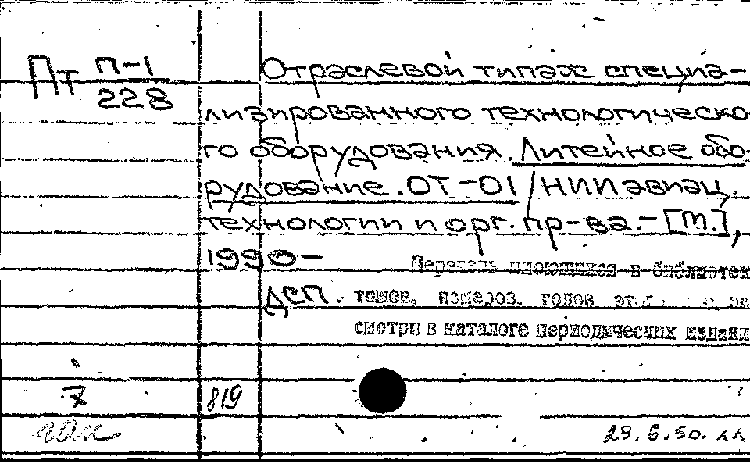 Пт П-1
228
Отраслевой типаж специа-
лизированного технологическо-
го оборудования. Литейное обо-
рудование. ОТ-01 / НИИ авиац.
технологии и орг. пр-ва. - [М.],
1990-
Перечень имеющихся в библиотек
ДСП. томов, номеров, годов
смотри в каталоге периодических издани
7 819
29.6.90.